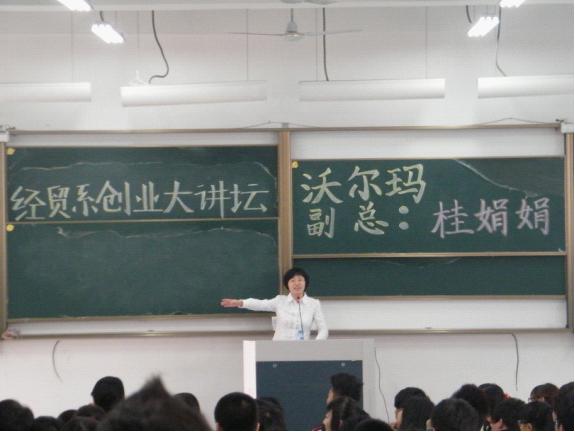 经贸系创业大讲坛
沃尔玛
副总：桂娟娟